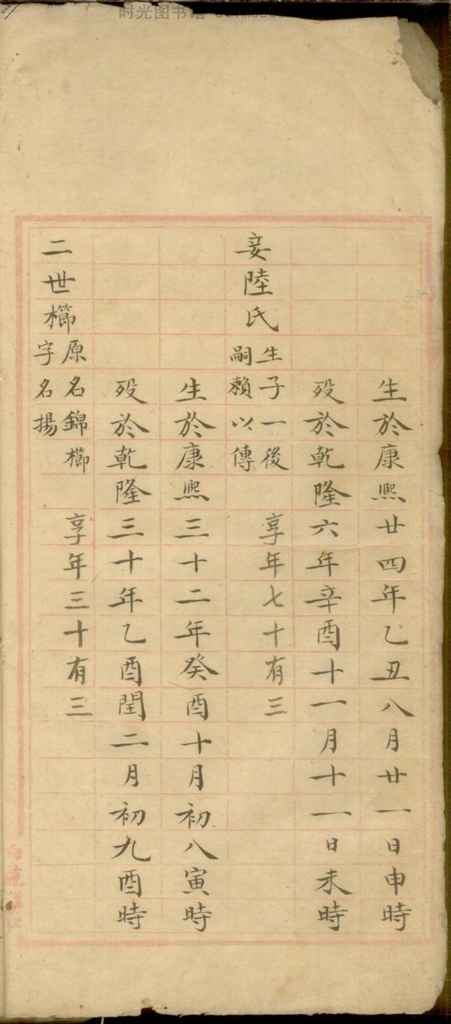 时光图书馆
生於康熙廿四年乙丑八月廿一日申時
殁於乾隆六年辛酉十一月十一日未時
妾陸氏
生子一後
嗣賴以傳
享年七十有三
生於康熙三十二年癸酉十月初八寅時
殁於乾隆三十年乙酉閏二月初九酉時
二世櫛
原名錦櫛
字名揚
享年三十有三